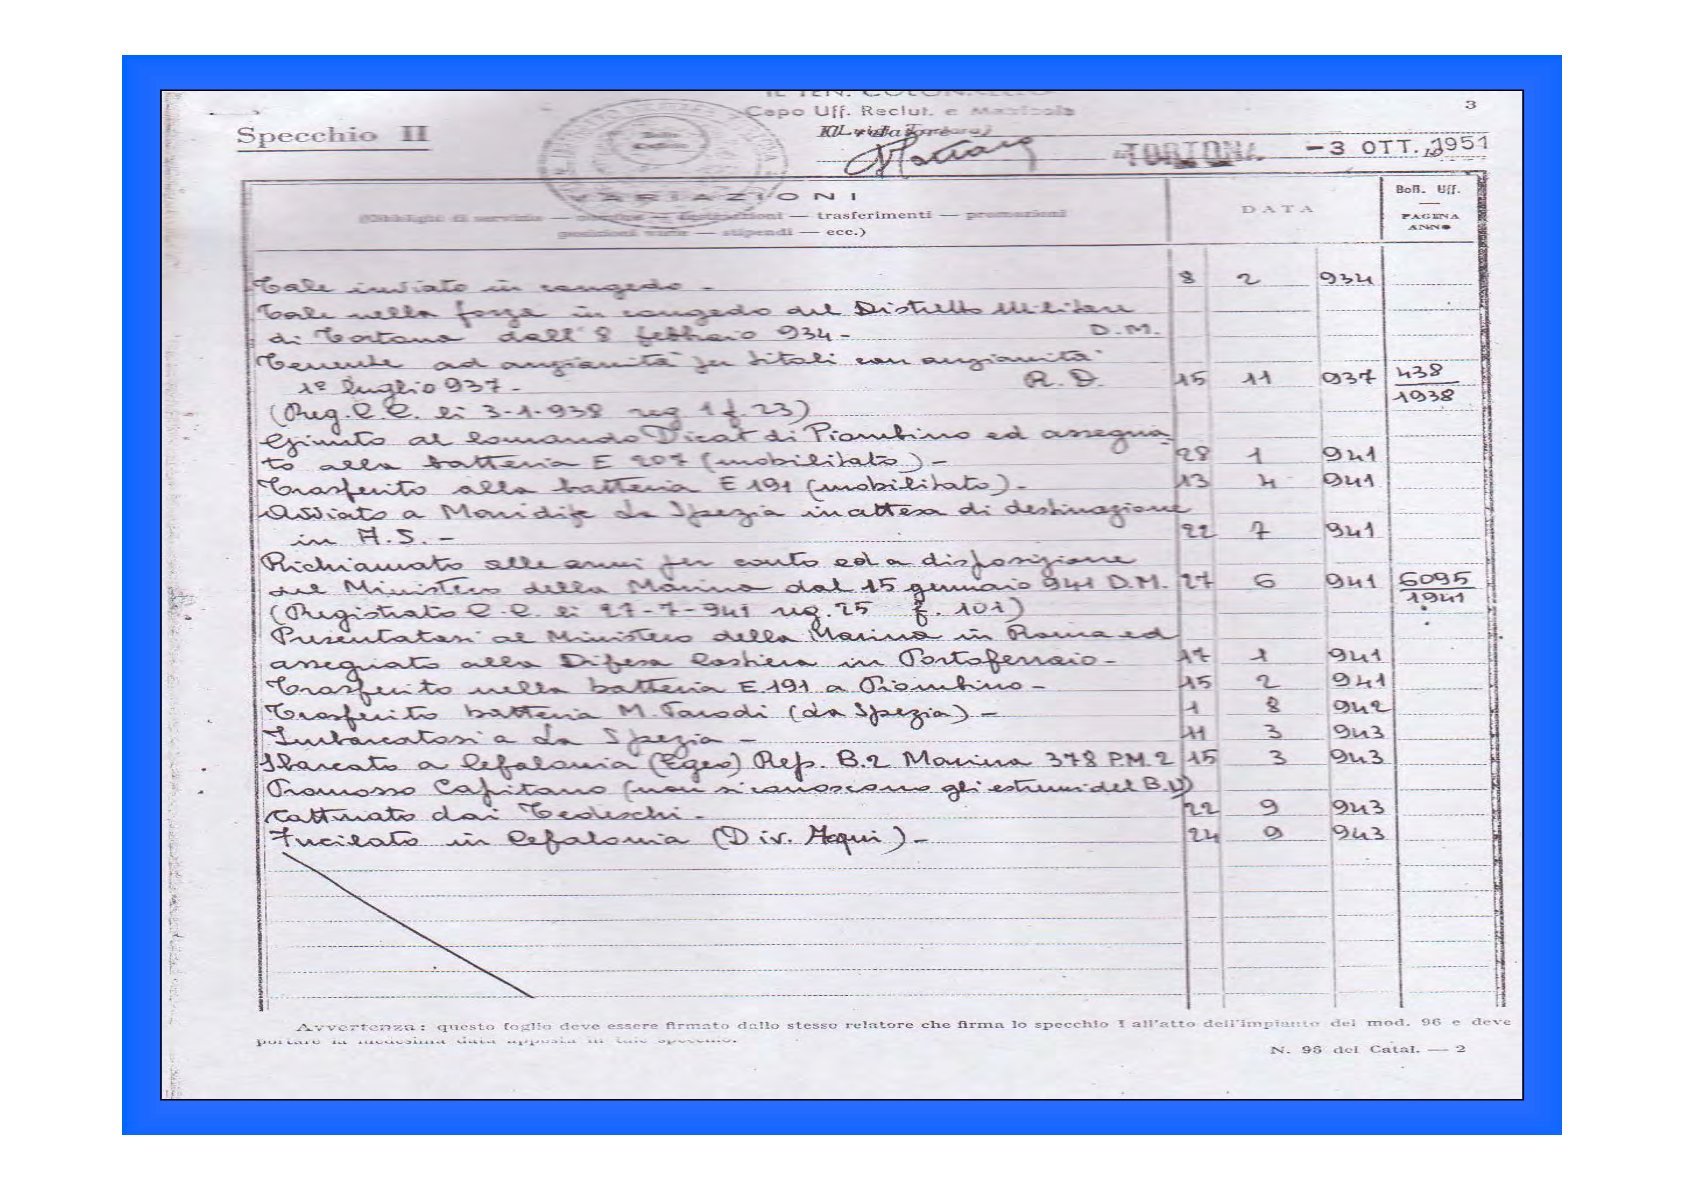 IL TEN. COLONNELLO
3
Capo Uff. Reclut. e Matricola
Specchio II
TORTONA -3 OTT. 1951
VARIAZIONI
DATA
Boll. Uff.
— 
PAGINA
ANNO
(Obblighi di servizio — nomine — destinazioni — trasferimenti — promozioni
posizioni varie — stipendi — ecc.)
Tale inviato in congedo - 8 2 934
Tale nella forza in congedo del Distretto Militare
di Tortona dall' 8 febbraio 934- D.M.
Tenente ad anzianità per titoli con anzianità
1º luglio 937.- R.D. 15 11 937 438/1938
(Reg. C.C. li 3-1-938 reg 1 f. 23)
Giunto al Comando Dicat di Piombino ed assegna-
to alla batteria E 207 (mobilitato) - 28 1 941
Trasferito alla batteria E 191 (mobilitato). - 13 4 941
Avviato a Maridife La Spezia in attesa di destinazione
in A.S. - 22 7 941
Richiamato alle armi per conto ed a disposizione
del Ministero della Marina dal 15 gennaio 941 D.M. 27 6 941 6095/1941
(Registrato C.C. li 27-7-941 reg. 25 f. 101)
Presentatosi al Ministero della Marina in Roma ed
assegnato alla Difesa Costiera in Portoferraio - 17 1 941
Trasferito nella batteria E 191 a Piombino - 15 2 941
Trasferito batteria M. Parodi (La Spezia) - 1 8 942
Imbarcatosi a La Spezia - 11 3 943
Sbarcato a Cefalonia (Egeo) Rep. B.2 Marina 378 P.M. 2 15 3 943
Promosso Capitano (non si conoscono gli estremi del B.U)
Catturato dai Tedeschi. - 22 9 943
Fucilato in Cefalonia (Div. Acqui) - 24 9 943
Avvertenza: questo foglio deve essere firmato dallo stesso relatore che firma lo specchio I all'atto dell'impianto del mod. 96 e deve
portare la medesima data apposta in tale specchio.
N. 96 del Catal. — 2